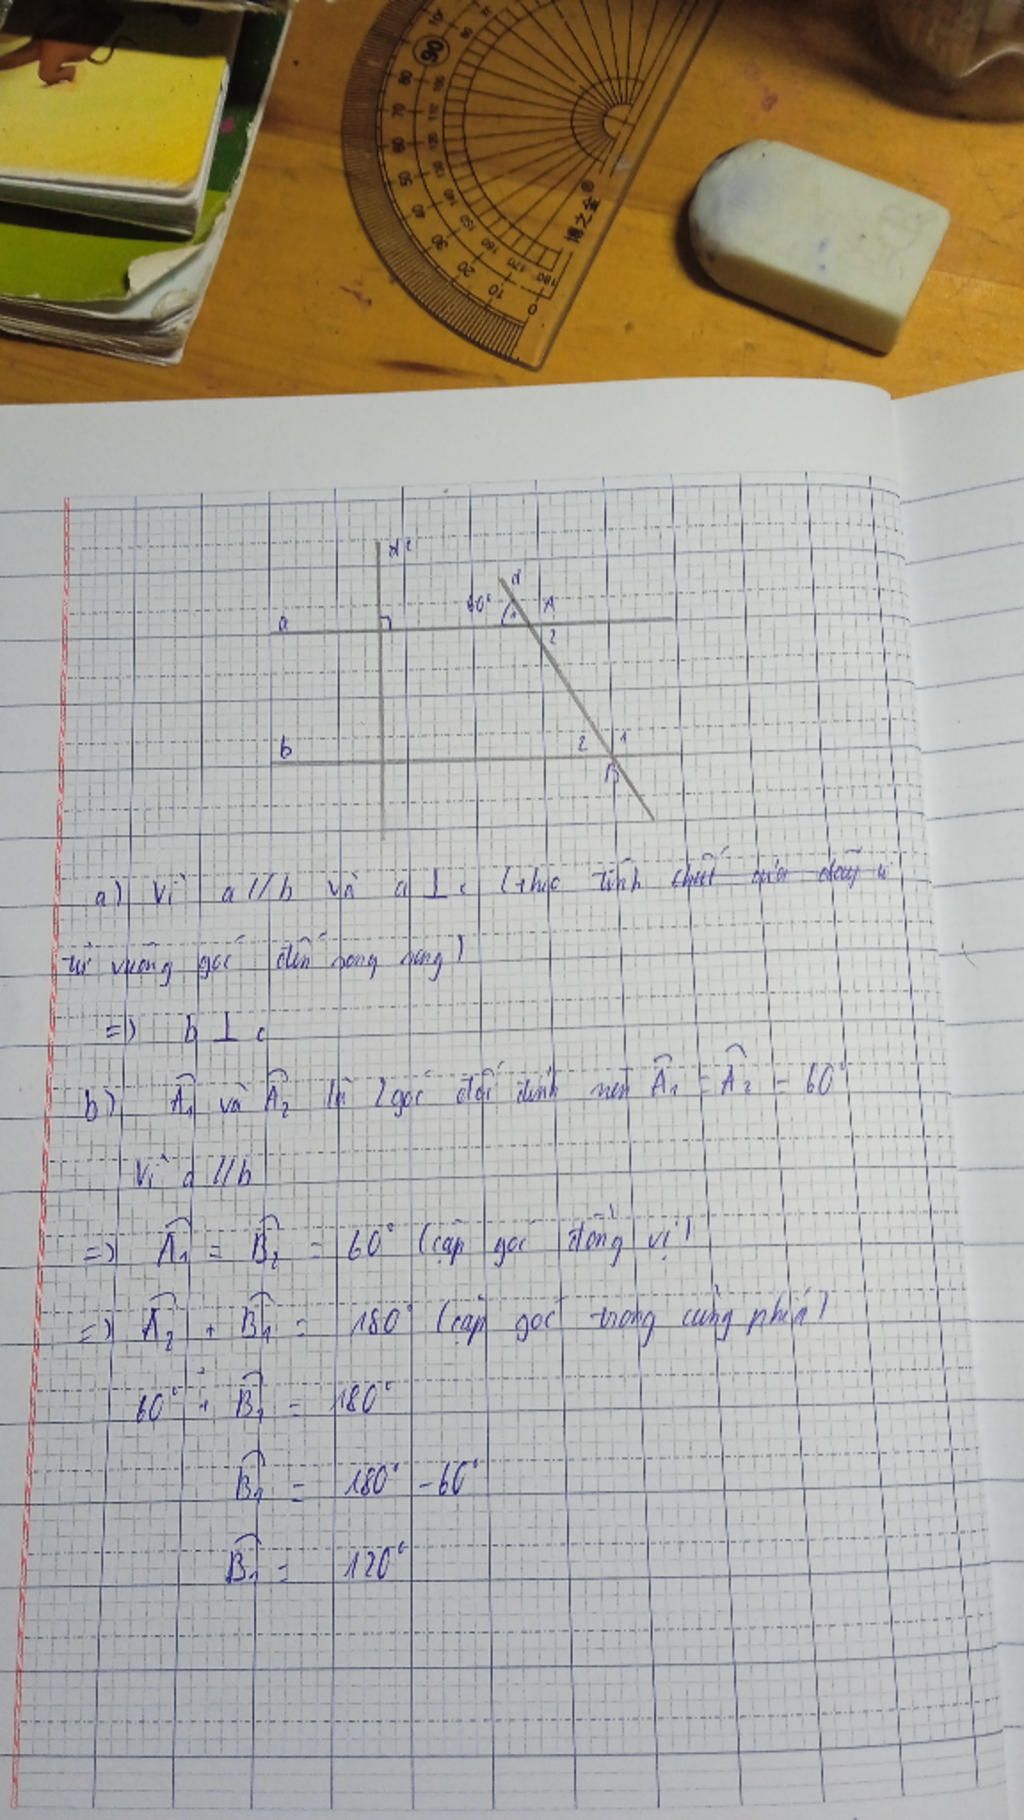 90
80
70
60
50
40
30
20
10
0
180
170
160
150
140
130
120
博之金®
c
d
60° 1 A
a
2
b
2 1
B
a) Vì a // b và a ⊥ c (theo tính chất
từ vuông góc đến song song)
=> b ⊥ c
b) Â1 và Â2 là 2 góc đối đỉnh nên Â1 = Â2 = 60°
Vì a // b
=> Â1 = B̂2 = 60° (cặp góc đồng vị)
=> Â2 + B̂1 = 180° (cặp góc trong cùng phía)
60° + B̂1 = 180°
B̂1 = 180° - 60°
B̂1 = 120°